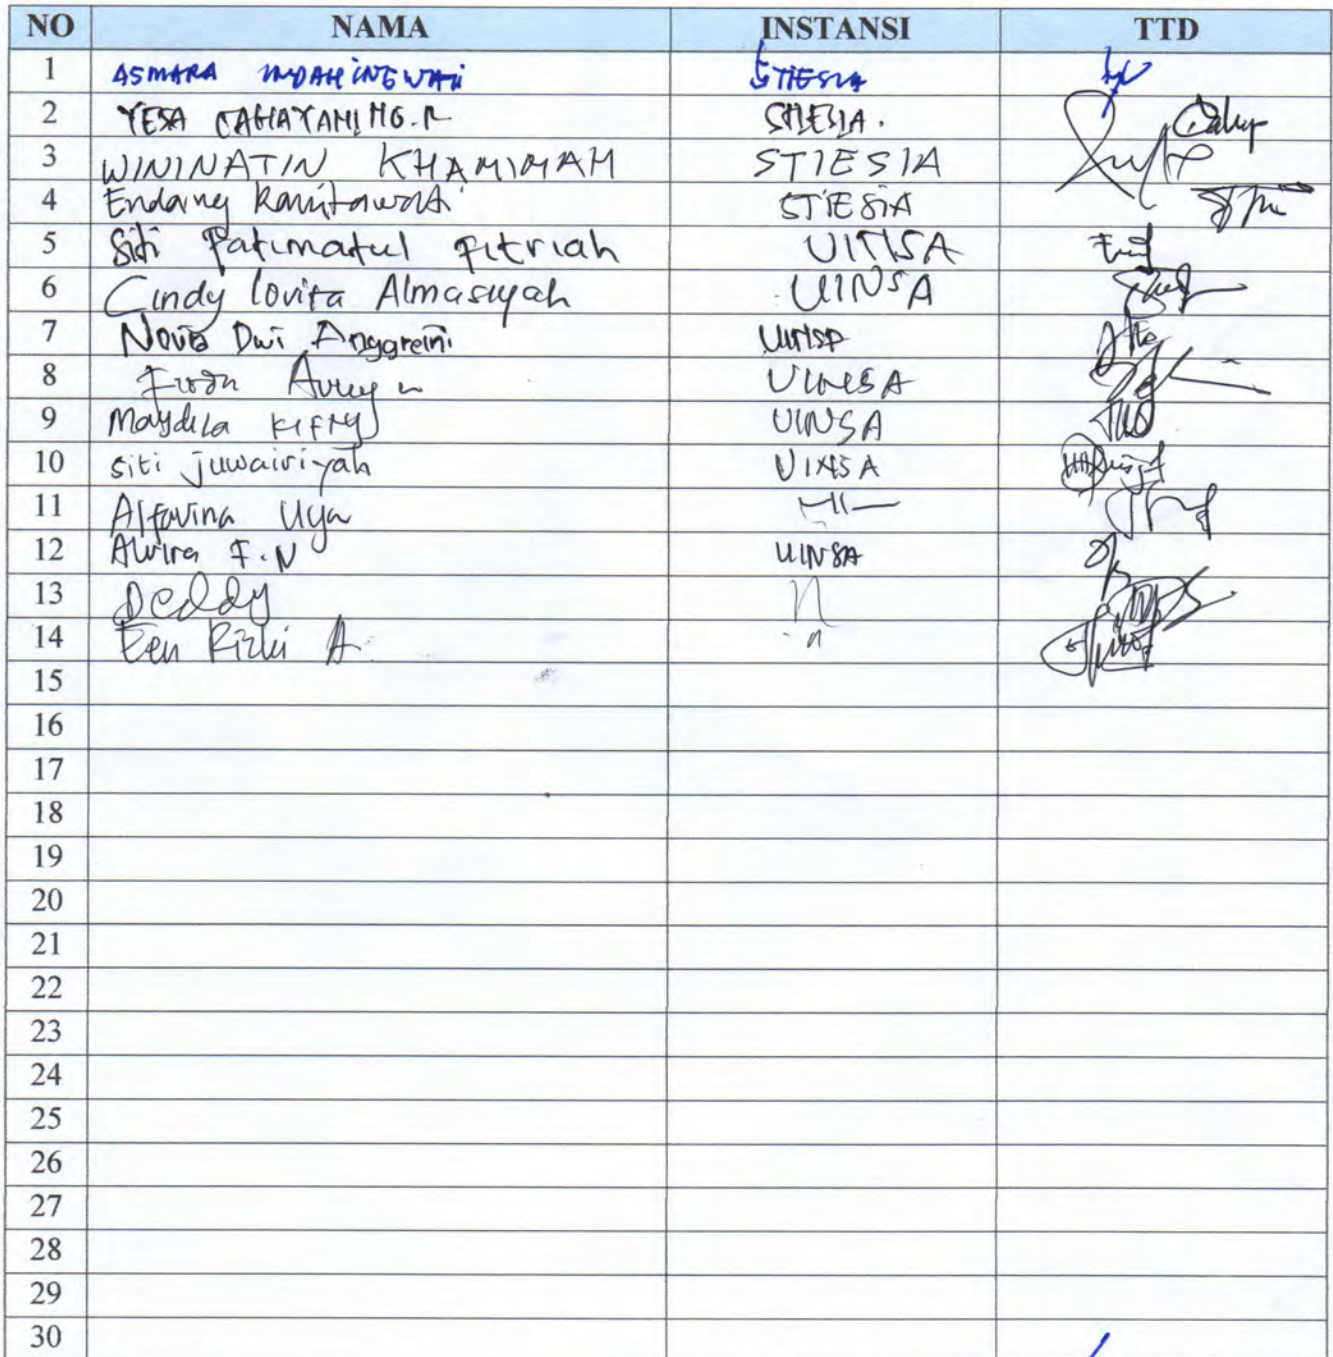 NO NAMA INSTANSI TTD
1 ASMARA INDAHINGWATI STIESIA
2 YESA CAHAYANING.R STIESIA.
3 WININATIN KHAMIMAH STIESIA
4 Endang STIESIA
5 Siti Fatimatul Fitriah UINSA
6 Cindy lovita Almasiyah UINSA
7 Novia Dwi Anggreini UINSA
8 UINSA
9 Maydila UINSA
10 siti juwairiyah UINSA
11 Alfavina
12 Alvira F.N UINSA
13 Deddy
14 Een Rizki A
15
16
17
18
19
20
21
22
23
24
25
26
27
28
29
30